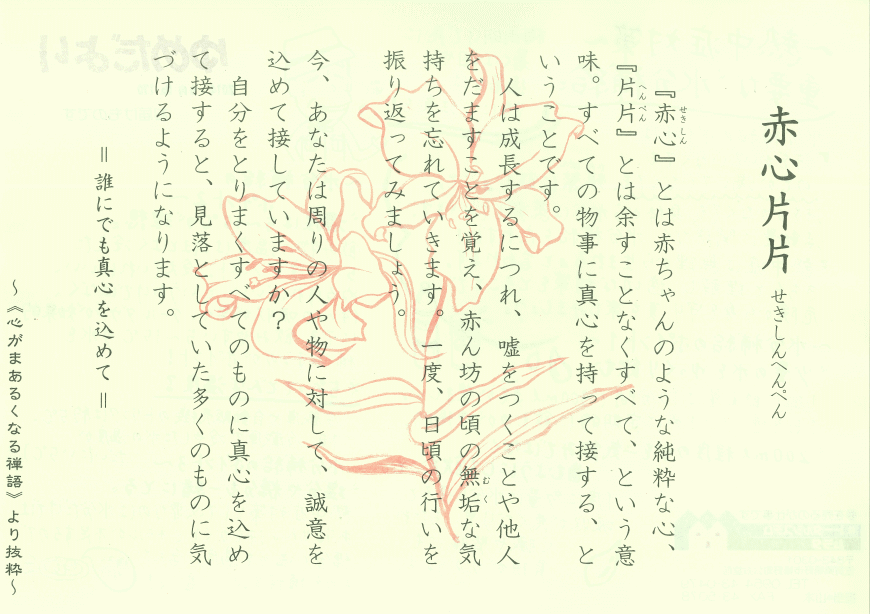 赤心片片 せきしんへんぺん
『赤心』とは赤ちゃんのような純粋な心、
せきしん
『片片』とは余すことなくすべて、という意
へんぺん
味。すべての物事に真心を持って接する、と
いうことです。
人は成長するにつれ、嘘をつくことや他人
をだますことを覚え、赤ん坊の頃の無垢な気
むく
持ちを忘れていきます。一度、日頃の行いを
振り返ってみましょう。
今、あなたは周りの人や物に対して、誠意を
込めて接していますか？
自分をとりまくすべてのものに真心を込め
て接すると、見落としていた多くのものに気
づけるようになります。
＝誰にでも真心を込めて＝
～《心がまあるくなる禅語》より抜粋～
ゆめだより